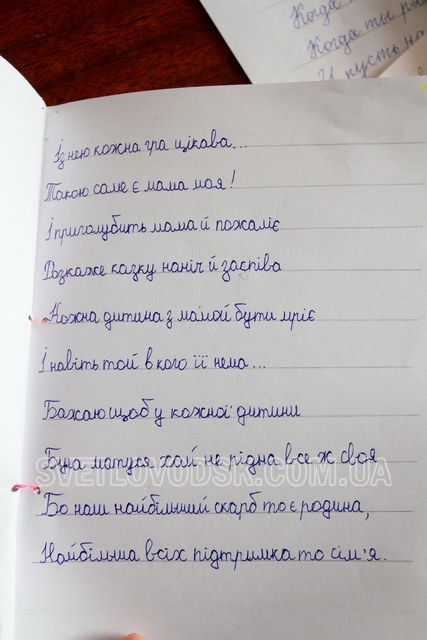 Когда
Когда ты ро
И пусть на
Із нею кожна гра цікава...
Такою саме є мама моя!
І приголубить мама й пожаліє
Розкаже казку наніч й заспіва
Кожна дитина з мамой бути мріє
І навіть той в кого її нема...
Бажаю щоб у кожної дитини
Була матуся хай не рідна все ж своя
SVETLOVODSK.COM.UA
Бо наш найбільший скарб то є родина,
Найбільша всіх підтримка то сім'я.